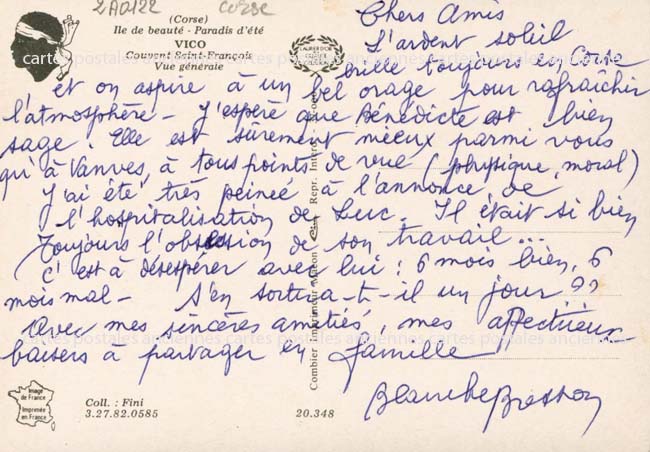 2A0122 Corse
(Corse)
Ile de beauté - Paradis d'été
VICO
Couvent Saint-François
Vue générale
LAURIER D'OR
cartes postales anciennes cartes postales anciennes cartes postales anciennes
Chers Amis
L'ardent soleil
brille toujours en Corse
et on aspire à un bel orage pour rafraîchir
l'atmosphère - J'espère que Bénédicte est bien
sage. Elle est sûrement mieux parmi vous
qu'à Vanves, à tous points de vue (physique, moral)
J'ai été très peinée à l'annonce de
l'hospitalisation de Luc. Il était si bien
Toujours l'obsession de son travail...
C'est à désespérer avec lui : 6 mois bien, 6
mois mal - S'en sortira-t-il un jour ??
Avec mes sincères amitiés, mes affectueux
baisers à partager en famille
Blanche Bresson
Combier Imprimeur Macon Repr. Interd.
cartes postales anciennes cartes postales anciennes cartes postales anciennes
Image
de France
Imprimée
en France
Coll. : Fini
3.27.82.0585
20.348